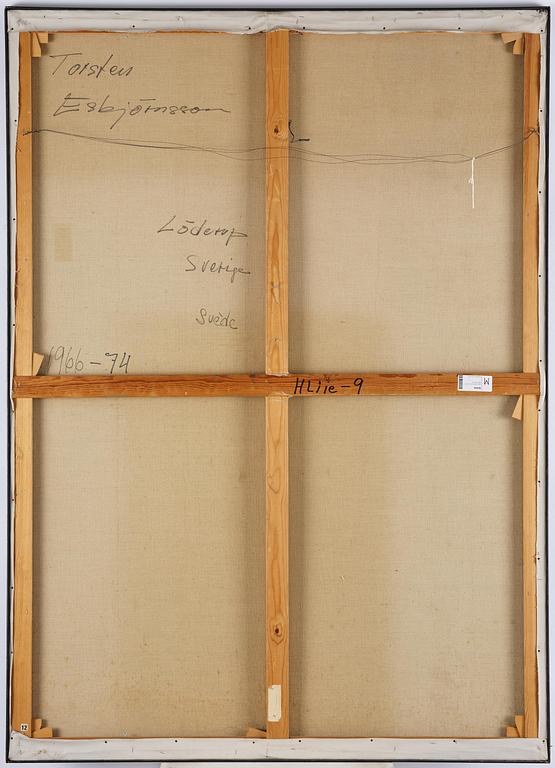 Torsten
Esbjörnsson
Löderup
Sverige
Suède
1966-74
HLIie-9
W
12